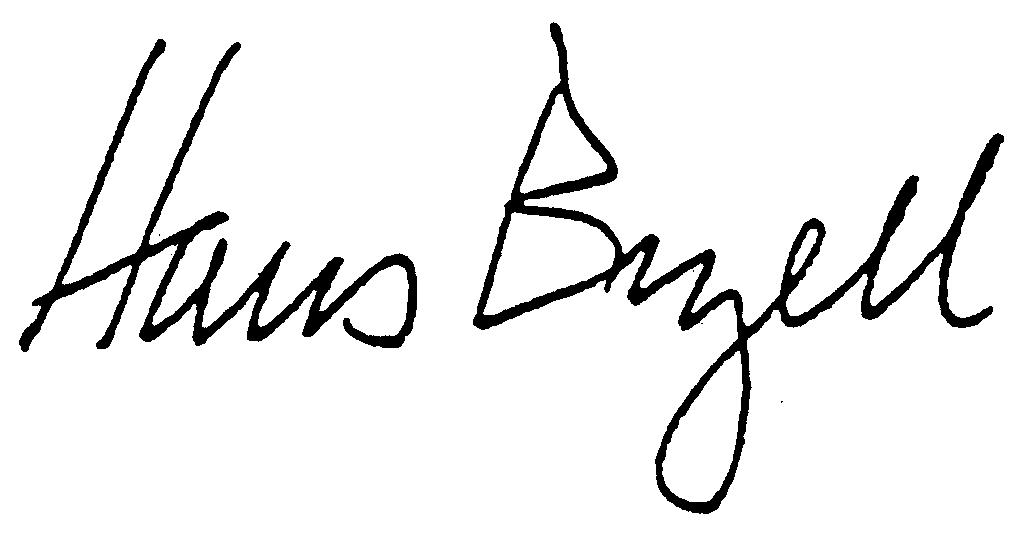 Hans Bryell